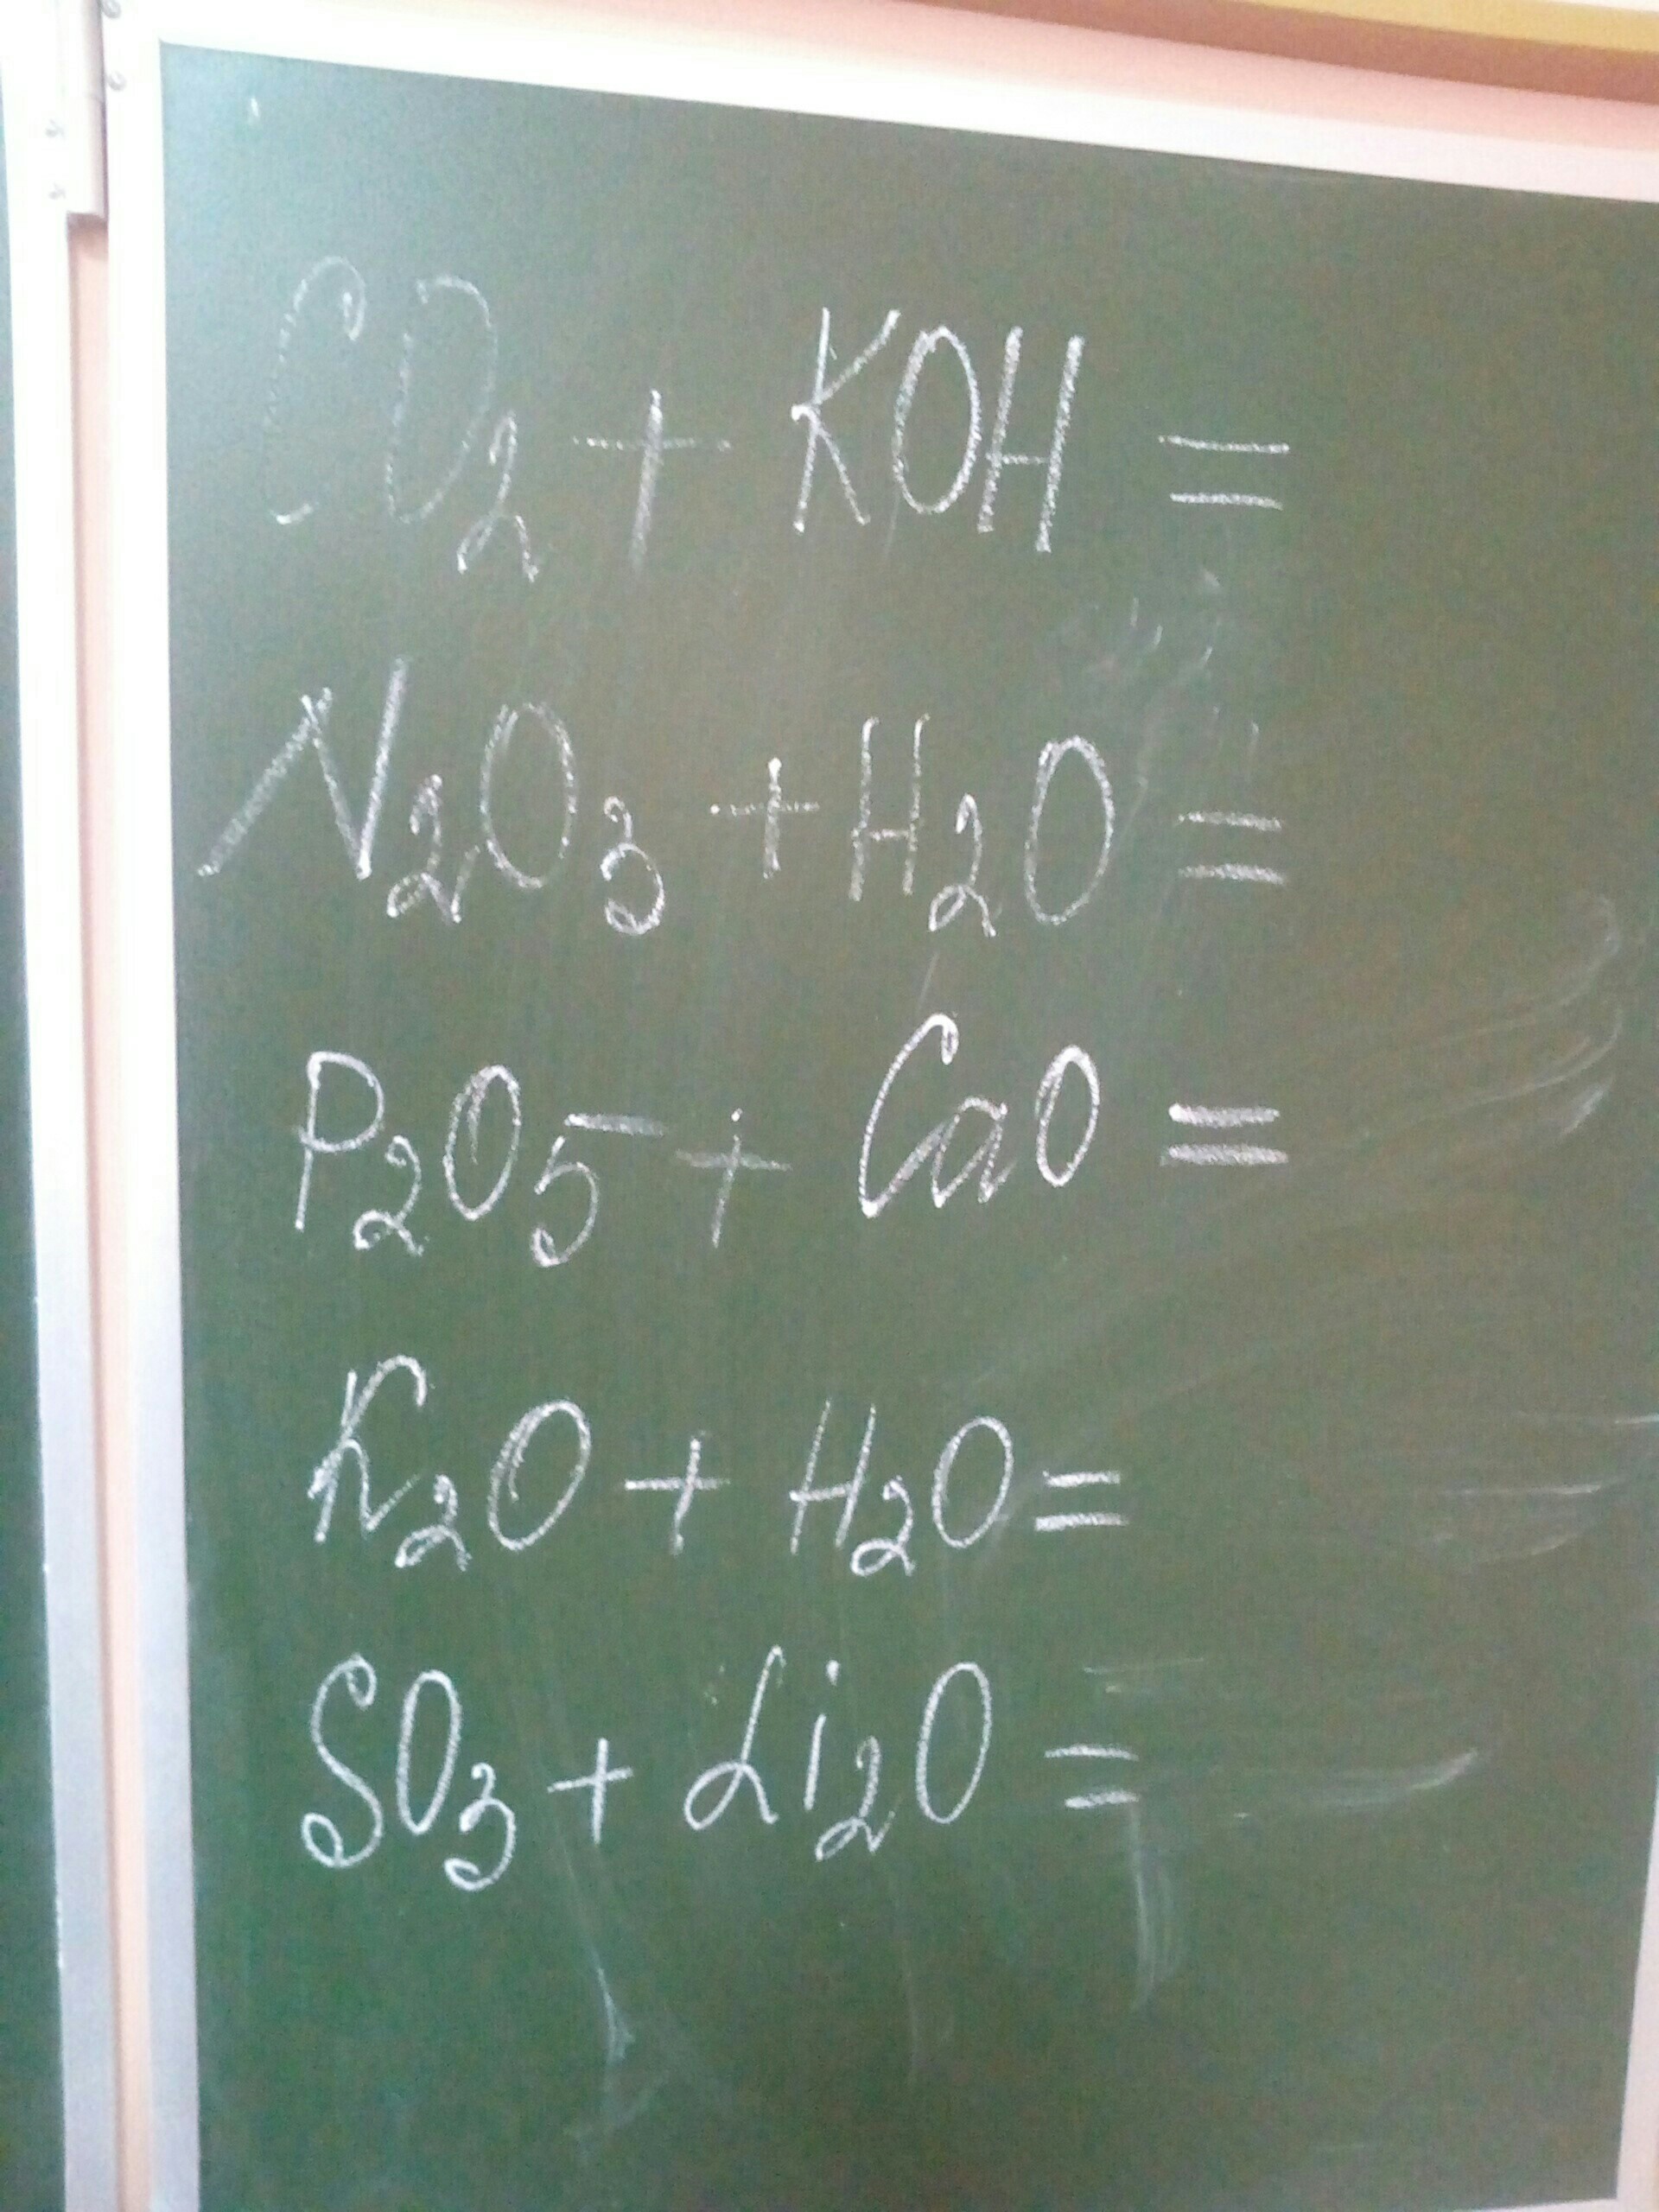 CO₂ + KOH =
N₂O₃ + H₂O =
P₂O₅ + CaO =
K₂O + H₂O =
SO₃ + Li₂O =